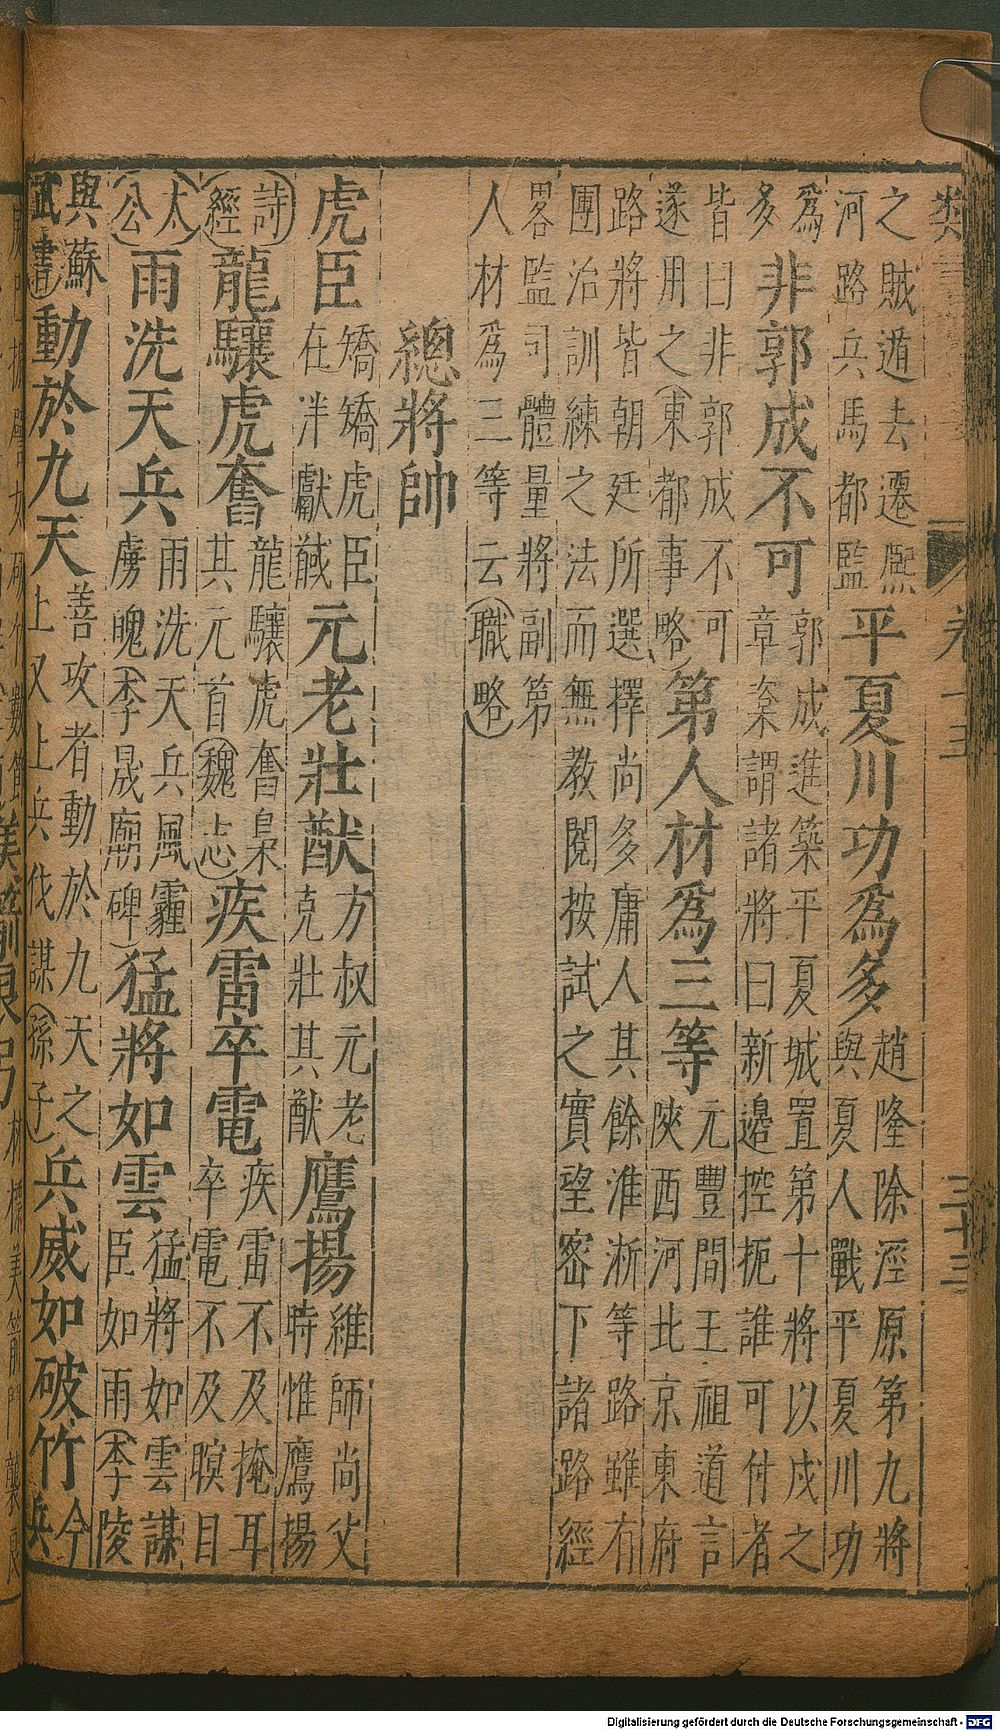 之賊遁去遷熈河路兵馬都監平夏川功爲多趙隆除涇原第九將與夏人戰平夏川功
爲多非郭成不可郭成進築平夏城置第十將以戍之章楶謂諸將曰新邊控扼誰可付者
皆曰非郭成不可遂用之(東都事略)第人材爲三等元豐間王祖道言陜西河北京東府
路將皆朝廷所選擇尚多庸人其餘淮浙等路雖有團治訓練之法而無教閱按試之實望密下諸路經
畧監司體量將副第人材爲三等云(職略)
總將帥
虎臣矯矯虎臣在泮獻馘元老壯猷方叔元老克壯其猷鷹揚維師尚父時惟鷹揚
(詩經)龍驤虎奮龍驤虎奮梟其元首(魏志)疾雷卒電疾雷不及掩耳卒電不及瞑目
(太公)雨洗天兵雨洗天兵風霾虜魄(李晟廟碑)猛將如雲猛將如雲謀臣如雨(李陵
與蘇武書)動於九天善攻者動於九天之上又上兵伐謀(孫子)兵威如破竹今兵
Digitalisierung gefördert durch die Deutsche Forschungsgemeinschaft - DFG